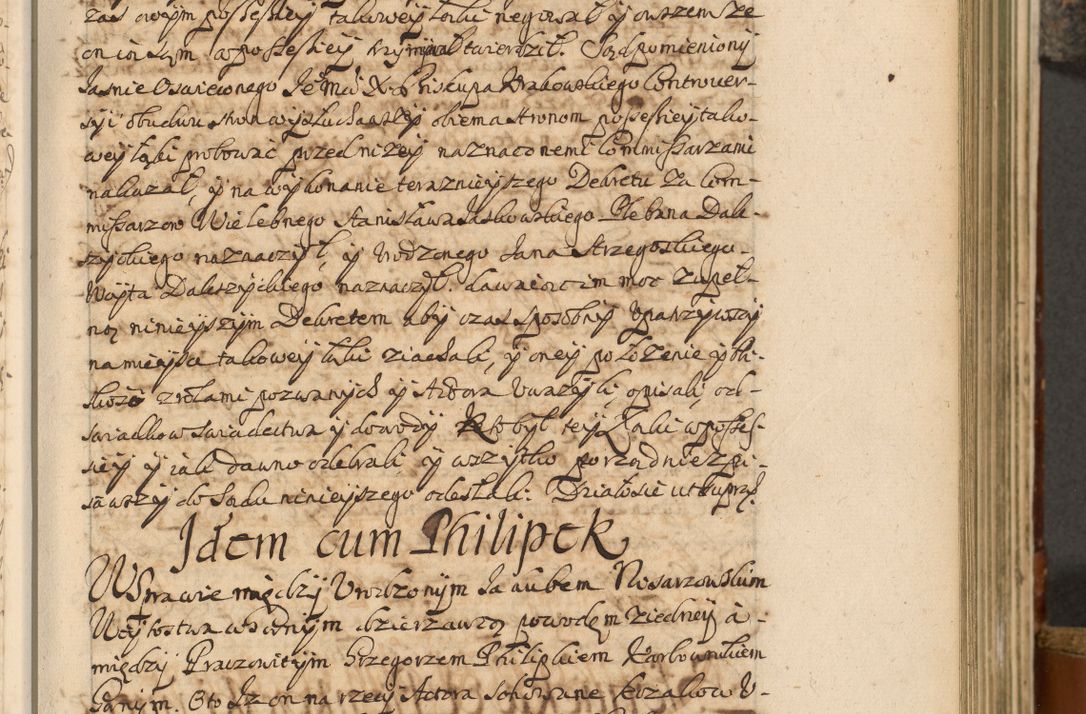 zaś owym possessiey takowey łąki negował y owszem ze
on iest w possessiey trzymał twierdził. Sąd pomieniony
Jasnie Oswieconego Je Mci X. Biskupa Krakowskiego Contrower-
syi obudwu stron wysłuchawszy obiema stronom possessiey tako-
wey łąki probować przed nizey naznaczonemi Commissarzami
nakazał, y na wykonanie teraznieyszego Dekretu Za Com-
missarzow Wielebnego Stanisława Jaskowskiego Plebana Dale-
szyckiego naznaczył, y Urodzonego Jana Strzegockiego
Woyta Daleszyckiego naznaczył. dawaiąc im moc zupeł-
ną ninieyszym Dekretem aby czas sposobny upatrzywszy
na mieysce takowey łąki ziachali, y oney położenie y bli-
skość z rolami pozwanych y Aktora uważyli, opisali, od
swiadkow swiadectwa y dowody Kto był tey łąki w posses-
siey y iak dawno odebrali, y wszystko porządnie zpi-
sawszy do Sądu ninieyszego odesłali. Działo sie ut supra.
Idem cum Philipek
W Sprawie między Urodzonym Jakubem Nosarzowskim
Woytostwa wsi dzierzawcą powodem z iedney à
między Pracowitym Grzegorzem Philipkiem Karbownikiem
Gór̃nym. Oto Iz on na rzecz Aktora